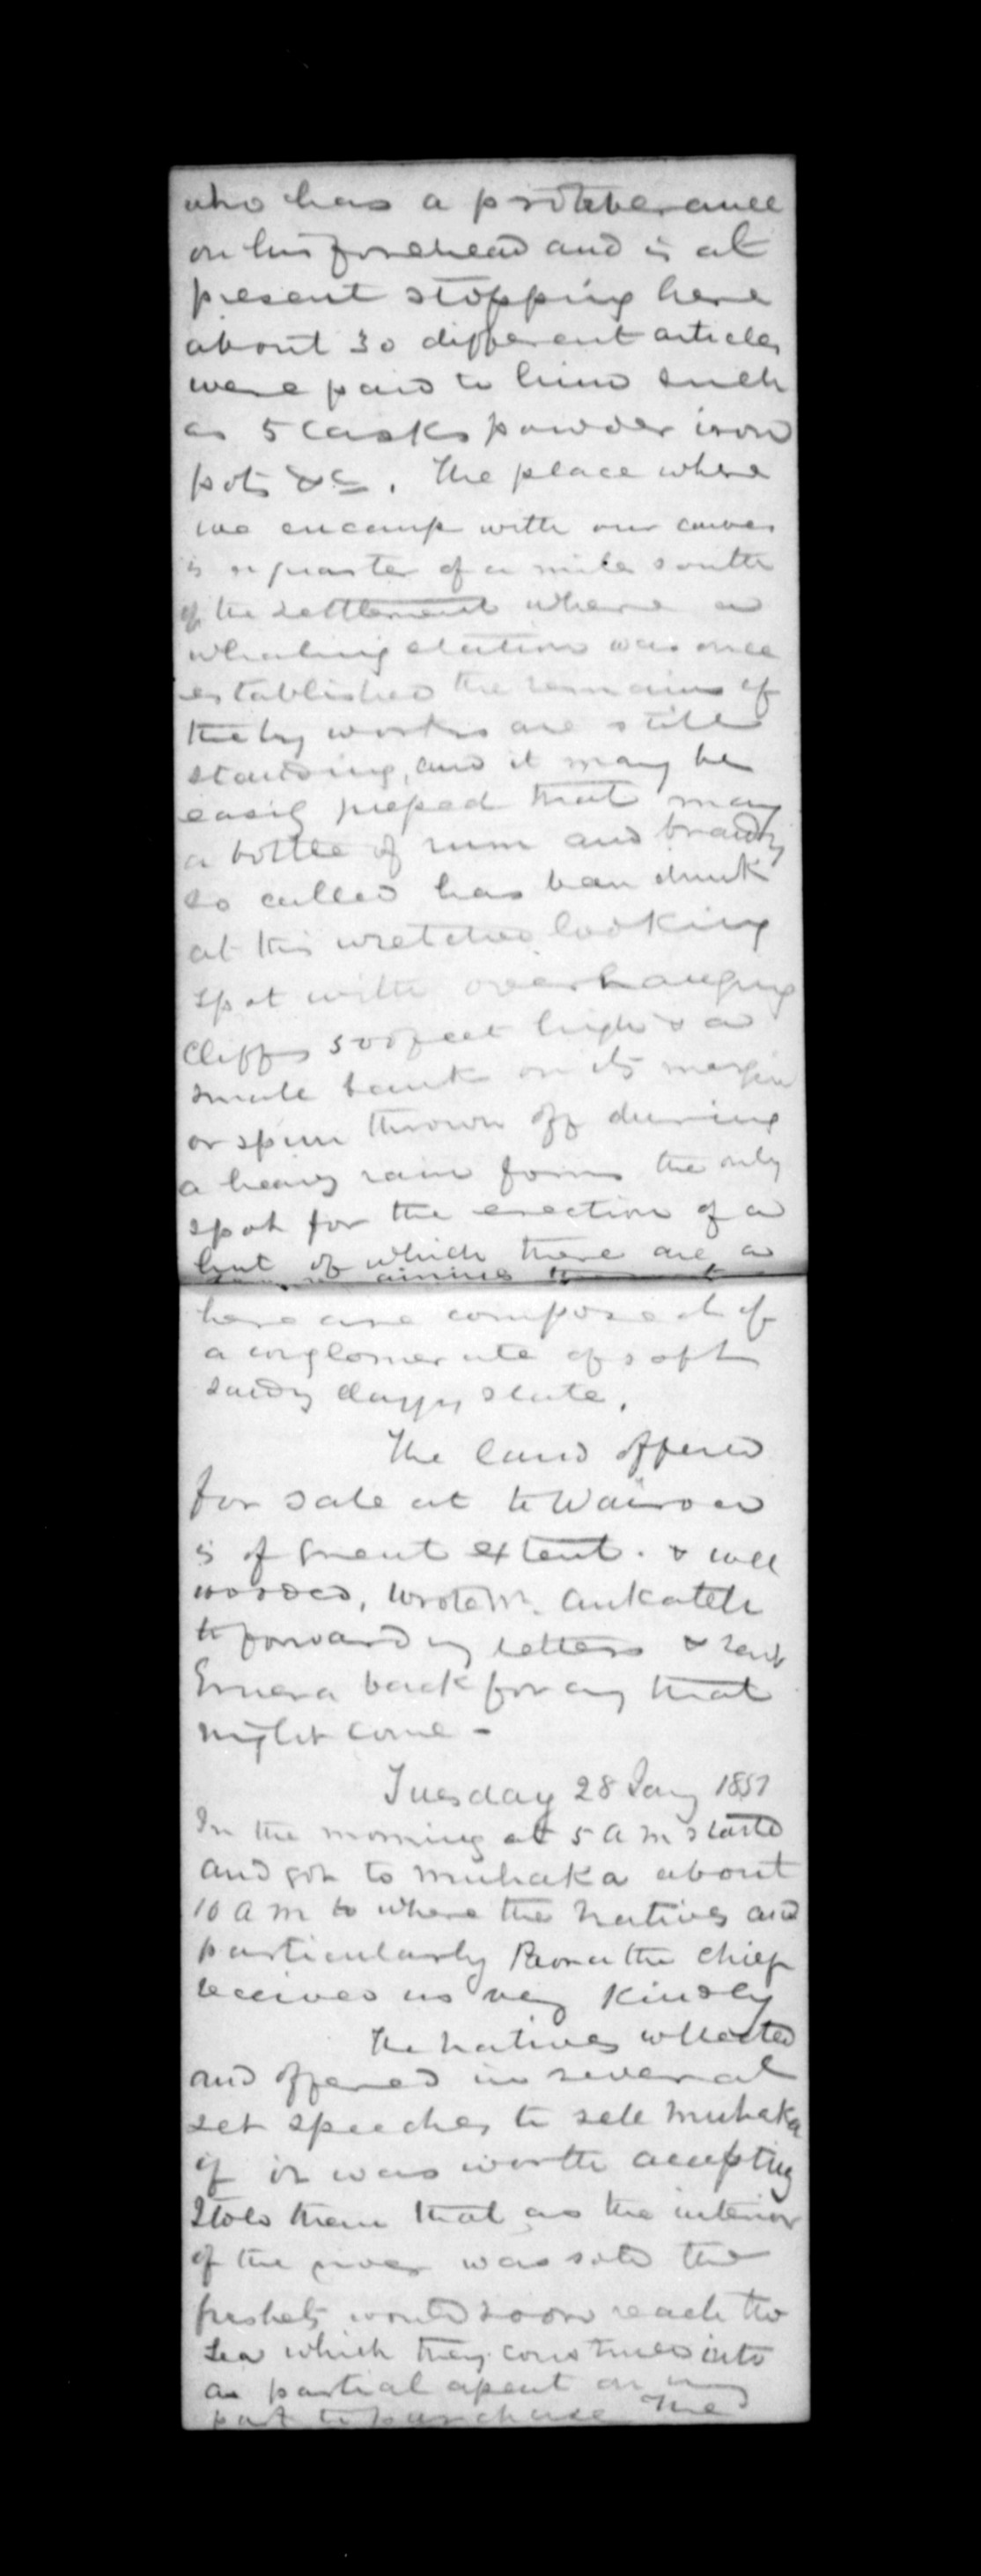 who has a protuberance
on his forehead and is at
present stopping here
about 30 different articles
were paid to him such
as 5 Casks powder iron
pots &c. The place where
we encamp with our canoes
is a quarter of a mile south
of the settlement where a
whaling station was once
established the remains of
the works are still
standing, and it may be
easily that many
a bottle of rum and brandy
so called has been drunk
at this wretched looking
spot with overhanging
Cliffs 500 feet high & a
small bank on its margin
or spur thrown off during
a heavy rain forms the only
spot for the erection of a
hut of which there are a
here are composed of
a conglomerate of soft
sandy clayey slate.
The land offered
for sale at te Wairoa
is of great extent. & well
wooded, wrote Mr.
to forward my letters & sent
back for any that
might come -
Tuesday 28 Jany 1851
In the morning at 5 A m started
and got to muhaka about
10 A m to where the natives and
particularly the chief
received us very kindly
The natives collected
and offered in several
set speeches to sell muhaka
if it was worth accepting
I told them that as the interior
of the river was sold the
freshets would soon reach the
Sea which they construed into
a partial assent on my
part to purchase The